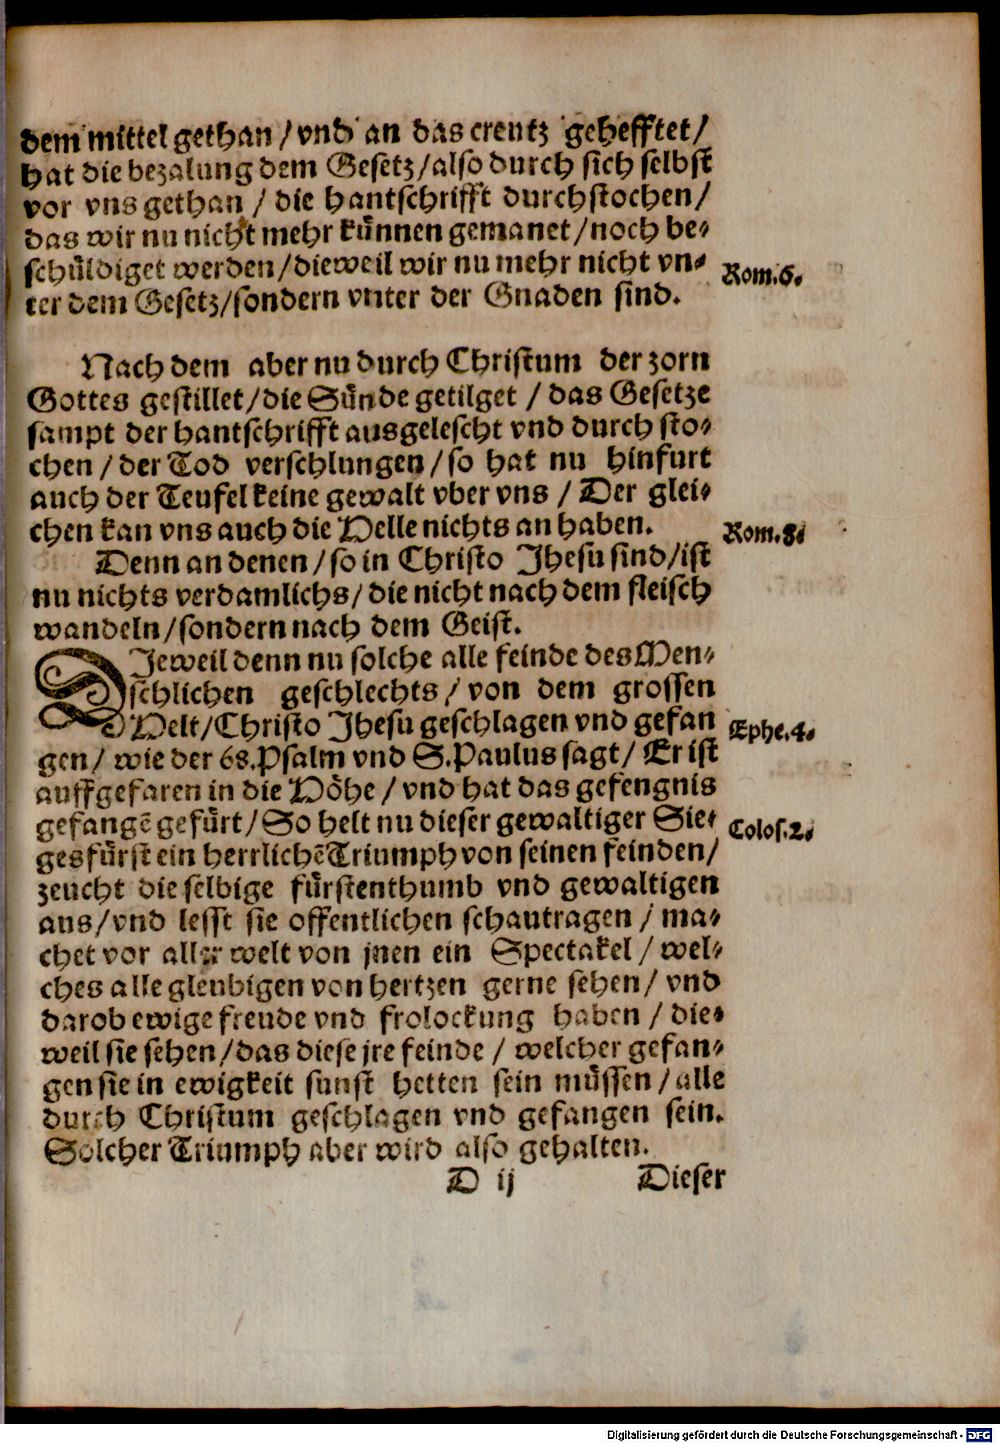 dem mittel gethan / vnd an das creutz gehefftet /
hat die bezalung dem Gesetz / also durch sich selbst
vor vns gethan / die hantschrifft durchstochen /
das wir nu nicht mehr künnen gemanet / noch be-
schüldiget werden / dieweil wir nu mehr nicht vn-
Rom. 6.
ter dem Gesetz / sondern vnter der Gnaden sind.
Nach dem aber nu durch Christum der zorn
Gottes gestillet / die Sünde getilget / das Gesetze
sampt der hantschrifft ausgelescht vnd durch sto-
chen / der Tod verschlungen / so hat nu hinfurt
auch der Teufel keine gewalt vber vns / Der glei-
chen kan vns auch die Helle nichts an haben.
Rom. 8.
Denn an denen / so in Christo Jhesu sind / ist
nu nichts verdamlichs / die nicht nach dem fleisch
wandeln / sondern nach dem Geist.
DJeweil denn nu solche alle feinde des Men-
schlichen geschlechts / von dem grossen
Helt / Christo Jhesu geschlagen vnd gefan
Ephe. 4.
gen / wie der 68. Psalm vnd S. Paulus sagt / Er ist
auffgefaren in die Höhe / vnd hat das gefengnis
gefangē gefürt / So helt nu dieser gewaltiger Sie-
Colos. 2.
gesfürst ein herrlichē Triumph von seinen feinden /
zeucht die selbige fürstenthumb vnd gewaltigen
aus / vnd lesst sie offentlichen schautragen / ma-
chet vor aller welt von jnen ein Spectakel / wel-
ches alle gleubigen von hertzen gerne sehen / vnd
darob ewige freude vnd frolockung haben / die-
weil sie sehen / das diese jre feinde / welcher gefan-
gen sie in ewigkeit sunst hetten sein müssen / alle
durch Christum geschlagen vnd gefangen sein.
Solcher Triumph aber wird also gehalten.
D ij
Dieser
Digitalisierung gefördert durch die Deutsche Forschungsgemeinschaft - DFG